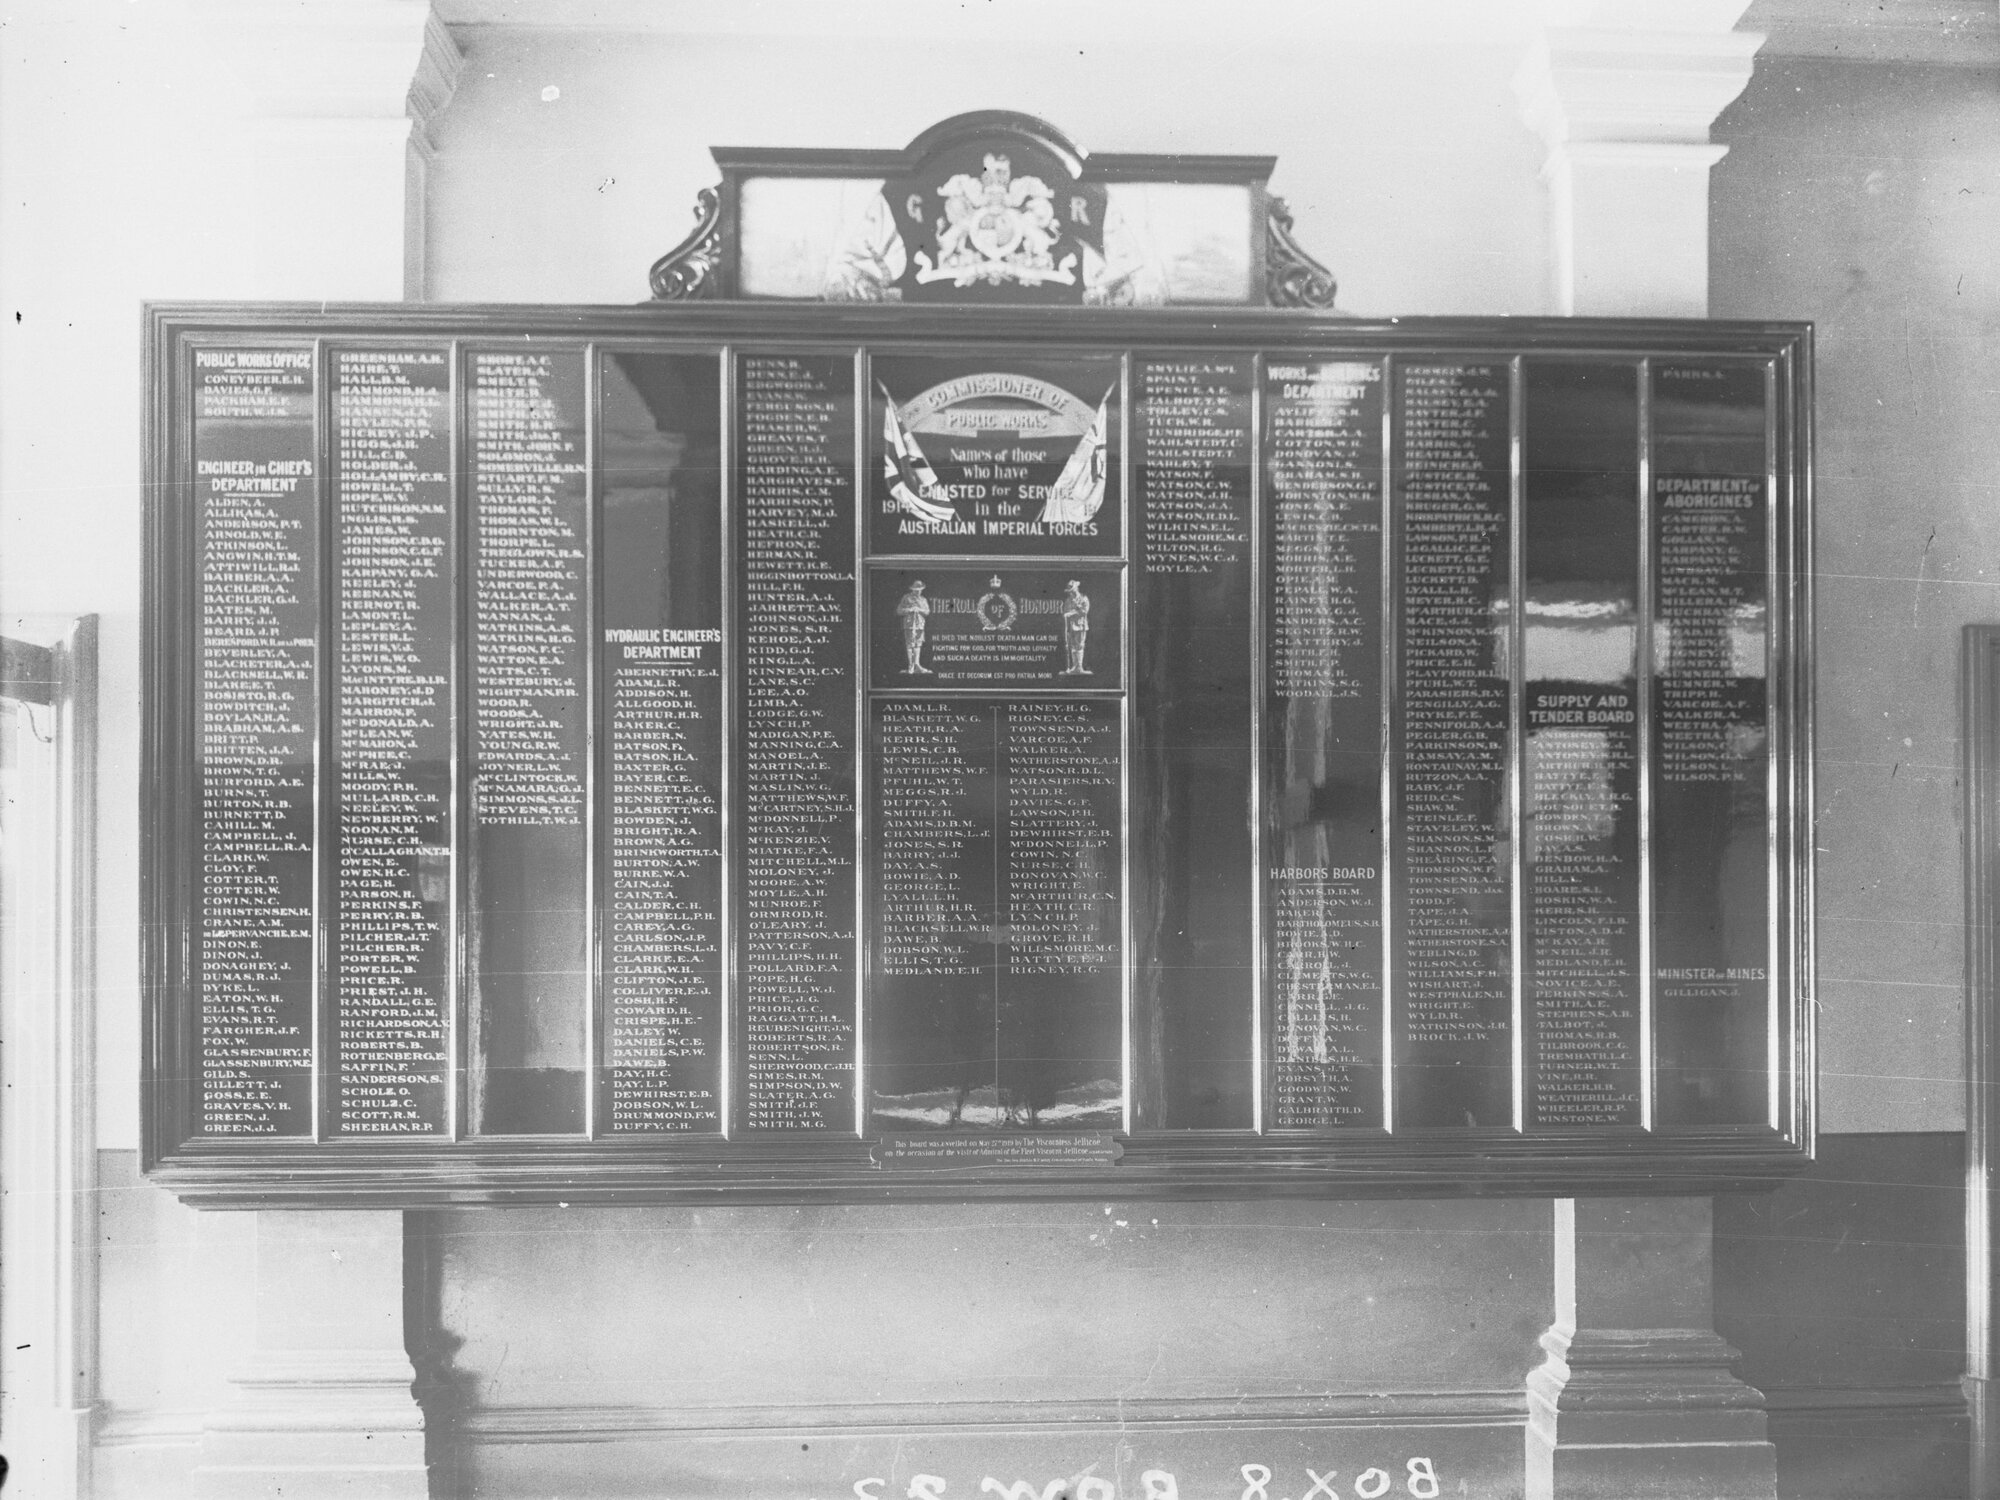 G R
PUBLIC WORKS OFFICE
CONEYBEER, E.H.
DAVIES, G.F.
PACKHAM, E.F.
SOUTH, W.J.S.
ENGINEER IN CHIEF'S
DEPARTMENT
ALBEN, A.
ALLIKAS, A.
ANDERSON, P.T.
ARNOLD, W.E.
ATKINSON, L.
ANGWIN, H.T.M.
ATTIWILL, R.J.
BARBER, A.A.
BACKLER, A.
BACKLER, G.J.
BATES, M.
BARRY, J.J.
BEARD, J.P.
BEVERLEY, A.
BLACKETER, A.J.
BLACKSELL, W.R.
BLAKE, E.T.
BOSISTO, R.G.
BOWDITCH, J.
BOYLAN, H.A.
BRABHAM, A.S.
BRITT, P.
BRITTEN, J.A.
BROWN, D.R.
BROWN, T.G.
BURFORD, A.E.
BURNS, T.
BURTON, R.B.
BURNETT, D.
CAHILL, M.
CAMPBELL, J.
CAMPBELL, R.A.
CLARK, W.
CLOY, F.
COTTER, T.
COTTER, W.
COWIN, N.C.
CHRISTENSEN, H.
CRANE, A.M.
DE LEPERVANCHE, E.M.
DINON, E.
DINON, J.
DONAGHEY, J.
DUMAS, R.J.
DYKE, L.
EATON, W.H.
ELLIS, T.G.
EVANS, R.T.
FARGHER, J.F.
FOX, W.
GLASSENBURY, F.
GLASSENBURY, W.E.
GILD, S.
GILLETT, J.
GOSS, E.E.
GRAVES, V.H.
GREEN, J.
GREEN, J.J.
GREENHAM, A.R.
HAIRE, T.
HALL, D.M.
HAMMOND, H.J.
HAMMOND, H.L.
HANSEN, J.A.
HEYLEN, P.S.
HICKEY, J.P.
HIGGS, J.H.
HILL, C.D.
HOLDER, J.
HOLLAMBY, C.R.
HOWELL, T.
HOPE, W.V.
HUTCHISON, N.M.
INGLIS, R.S.
JAMES, W.
JOHNSON, C.D.O.
JOHNSON, C.G.F.
JOHNSON, J.E.
KARPANY, G.A.
KEELEY, J.
KEENAN, W.
KERNOT, R.
LAMONT, L.
LEPLEY, A.
LESTER, L.
LEWIS, V.J.
LEWIS, W.O.
LYONS, M.
MACINTYRE, B.I.R.
MAHONEY, J.D
MARGITICH, J.
MARRON, F.
McDONALD, A.
McLEAN, W.
McMAHON, J.
McPHEE, C.
McRAE, J.
MILLS, W.
MOODY, P.H.
MULLARD, C.H.
NEELEY, W.
NEWBERRY, W.
NOONAN, M.
NURSE, C.H.
O'CALLAGHAN, T.B.
OWEN, E.
OWEN, H.C.
PAGE, H.
PARSON, H.
PERKINS, F.
PERRY, R.B.
PHILLIPS, T.W.
PILCHER, J.T.
PILCHER, R.
PORTER, W.
POWELL, B.
PRICE, R.
PRIEST, J.H.
RANDALL, G.E.
RANFORD, J.M.
RICHARDSON, A.V.
RICKETTS, R.H.
ROBERTS, B.
ROTHENBERG, E.
SAFFIN, F.
SANDERSON, S.
SCHOLZ, O.
SCHULZ, C.
SCOTT, R.M.
SHEEHAN, R.P.
SHORT, A.C.
SLATER, A.
SMELT, S.
SMITH, B.
SMITH, H.R.
SMITH, Jas. F.
SMITH, John F.
SOLOMON, J.
SOMERVILLE, R.N.
STUART, F.M.
SULLY, R.S.
TAYLOR, A.
THOMAS, P.
THOMAS, W.L.
THORNTON, M.
THORPE, L.
TREGLOWN, R.S.
TUCKER, A.F.
UNDERWOOD, C.
VARCOE, F.A.
WALLACE, A.J.
WALKER, A.T.
WANNAN, J.
WATKINS, A.S.
WATKINS, H.G.
WATSON, F.C.
WATTON, E.A.
WATTS, C.T.
WESTEBURY, J.
WIGHTMAN, P.R.
WOOD, R.
WOODS, A.
WRIGHT, J.R.
YATES, W.H.
YOUNG, R.W.
EDWARDS, A.J.
JOYNER, L.W.
McCLINTOCK, W.
McNAMARA, G.J.
SIMMONS, S.J.L.
STEVENS, T.C.
TOTHILL, T.W.J.
HYDRAULIC ENGINEER'S
DEPARTMENT
ABERNETHY, E.J.
ADAM, L.R.
ADDISON, H.
ALLGOOD, H.
ARTHUR, H.R.
BAKER, C.
BARBER, N.
BATSON, F.
BATSON, H.A.
BAXTER, G.
BAYER, C.E.
BENNETT, E.C.
BENNETT, Jr. G.
BLASKETT, W.G.
BOWDEN, J.
BRIGHT, R.A.
BROWN, A.G.
BRINKWORTH, T.A.
BURTON, A.W.
BURKE, W.A.
CAIN, J.J.
CAIN, T.A.
CALDER, C.H.
CAMPBELL, P.H.
CAREY, A.G.
CARLSON, J.P.
CHAMBERS, L.J.
CLARKE, E.A.
CLARK, W.H.
CLIFTON, J.E.
COLLIVER, E.J.
COSH, H.F.
COWARD, H.
CRISPE, H.E.
DALEY, W.
DANIELS, C.E.
DANIELS, P.W.
DAWE, B.
DAY, H.C.
DAY, L.P.
DEWHIRST, E.B.
DOBSON, W.L.
DRUMMOND, F.W.
DUFFY, C.H.
DUNN, B.
DUNN, E.J.
EDGWOOD, J.
EVANS, W.
FERGUSON, H.
FOGDEN, E.B.
FRASER, W.
GREAVES, T.
GREEN, H.J.
GROVE, R.H.
HARDING, A.E.
HARGRAVES, E.
HARRIS, C.M.
HARRISON, P.
HARVEY, M.J.
HASKELL, J.
HEATH, C.R.
HEFRON, E.
HERMAN, R.
HEWETT, K.E.
HIGGINBOTTOM, L.A.
HILL, F.H.
HUNTER, A.J.
JARRETT, A.W.
JOHNSON, J.H.
JONES, S.R.
KEHOE, A.J.
KIDD, G.J.
KING, L.A.
KINNEAR, C.V.
LANE, S.C.
LEE, A.O.
LIMB, A.
LODGE, G.W.
LYNCH, P.
MADIGAN, P.E.
MANNING, C.A.
MANOEL, A.
MARTIN, J.E.
MARTIN, J.
MASLIN, W.G.
MATTHEWS, W.F.
McCARTNEY, S.H.J.
McDONNELL, P.
McKAY, J.
McKENZIE, V.
MIATKE, F.A.
MITCHELL, M.L.
MOLONEY, J.
MOORE, A.W.
MOYLE, A.H.
MUNROE, F.
ORMROD, R.
O'LEARY, J.
PATTERSON, A.J.
PAVY, C.F.
PHILLIPS, H.H.
POLLARD, F.A.
POPE, H.G.
POWELL, W.J.
PRICE, J.G.
PRIOR, G.C.
RAGGATT, H.L.
REUBENIGHT, J.W.
ROBERTS, R.A.
ROBERTSON, R.
SENN, L.
SHERWOOD, C.J.H.
SIMES, R.M.
SIMPSON, D.W.
SLATER, A.G.
SMITH, J.F.
SMITH, J.W.
SMITH, M.G.
COMMISSIONER OF
PUBLIC WORKS
Names of those
who have
ENLISTED for SERVICE
1914 in the 19
AUSTRALIAN IMPERIAL FORCES
THE ROLL OF HONOUR
HE DIED THE NOBLEST DEATH A MAN CAN DIE
FIGHTING FOR GOD, FOR TRUTH AND LOYALTY
AND SUCH A DEATH IS IMMORTALITY
DULCE ET DECORUM EST PRO PATRIA MORI
ADAM, L.R.
BLASKETT, W.G.
HEATH, R.A.
KERR, S.H.
LEWIS, C.B.
McNEIL, J.R.
MATTHEWS, W.F.
PFUHL, W.T.
MEGGS, R.J.
DUFFY, A.
SMITH, F.H.
ADAMS, D.B.M.
CHAMBERS, L.J.
JONES, S.R.
BARRY, J.J.
DAY, A.S.
BOWIE, A.D.
GEORGE, L.
LYALL, L.H.
ARTHUR, H.R.
BARBER, A.A.
BLACKSELL, W.R.
DAWE, B.
DOBSON, W.L.
ELLIS, T.G.
MEDLAND, E.H.
RAINEY, H.G.
RIGNEY, C.S.
TOWNSEND, A.J.
VARCOE, A.F.
WALKER, A.
WATHERSTONE, A.J.
WATSON, R.D.L.
PARASIERS, R.V.
WYLD, R.
DAVIES, G.F.
LAWSON, P.H.
SLATTERY, J.
DEWHIRST, E.B.
McDONNELL, P.
COWIN, N.C.
NURSE, C.H.
DONOVAN, W.C.
WRIGHT, E.
McARTHUR, C.N.
HEATH, C.R.
LYNCH, P.
MOLONEY, J.
GROVE, R.H.
WILLSMORE, M.C.
BATTYE, E.J.
RIGNEY, R.G.
This board was unveiled on May 27th 1919 by The Viscountess Jellicoe
on the occasion of the visit of Admiral of the Fleet Viscount Jellicoe
SMYLIE, A. McI.
SPAIN, T.
SPENCE, A.E.
TALBOT, T.W.
TOLLEY, C.S.
TUCK, W.R.
TUNBRIDGE, P.F.
WAHLSTEDT, C.
WAHLSTEDT, T.
WARLEY, T.
WATSON, F.
WATSON, G.W.
WATSON, J.H.
WATSON, J.A.
WATSON, R.D.L.
WILKINS, E.L.
WILLSMORE, M.C.
WILTON, R.G.
WYNES, W.C.J.
MOYLE, A.
DEPARTMENT
CARTER, A.A.
COTTON, W.R.
DONOVAN, J.
GANNONI, S.
GRAHAM, S.H.
HENDERSON, G.F.
JOHNSTON, W.H.
JONES, A.E.
LEWIS, C.B.
MARTIN, T.E.
MEGGS, R.J.
MORRIS, A.E.
MORTER, L.H.
OPIE, A.M.
PEPALL, W.A.
RAINEY, H.G.
REDWAY, G.J.
SANDERS, A.C.
SEGNITZ, R.W.
SLATTERY, J.
SMITH, F.H.
SMITH, F.P.
THOMAS, H.
WATKINS, S.G.
WOODALL, J.S.
HARBORS BOARD
ADAMS, D.B.M.
ANDERSON, W.J.
BAKER, A.
BARTHOLOMEUS, S.R.
BOWIE, A.D.
BROOKS, W.H.C.
CARR, H.W.
CARROLL, J.
CLEMENTS, W.G.
CHESTERMAN, E.L.
CARR, G.E.
CONNELL, J.G.
COLLINS, H.
DONOVAN, W.C.
DUFFY, A.
DANIELS, H.E.
EVANS, J.T.
FORSYTH, A.
GOODWIN, W.
GRANT, W.
GALBRAITH, D.
GEORGE, L.
GILES, L.
HARRIS, J.
HEATH, R.A.
HEINICKE, P.
JUSTICE, H.
JUSTICE, T.H.
KESHAN, A.
KRUGER, G.W.
KIRKPATRICK, R.C.
LAMBERT, L.R.J.
LAWSON, P.H.
LeGALLIC, E.P.
LUCKETT, G.E.
LUCKETT, H.F.
LUCKETT, D.
LYALL, L.H.
MEYER, H.C.
McARTHUR, C.N.
MACE, J.J.
McKINNON, W.
NEILSON, A.
PICKARD, W.
PRICE, E.H.
PLAYFORD, H.L.
PFUHL, W.T.
PARASIERS, R.V.
PENGILLY, A.G.
PRYKE, F.E.
PENNIFOLD, A.J.
PEGLER, G.B.
PARKINSON, B.
RAMSAY, A.M.
RONTAUNAY, M.L.
RUTZON, A.A.
RABY, J.F.
REID, C.S.
SHAW, M.
STEINLE, F.
STAVELEY, W.
SHANNON, S.M.
SHANNON, L.F.
SHEARING, F.A.
THOMSON, W.F.
TOWNSEND, A.J.
TOWNSEND, Jas.
TODD, F.
TAPE, J.A.
TAPE, G.H.
WATHERSTONE, A.J.
WATHERSTONE, S.A.
WEBLING, D.
WILSON, A.C.
WILLIAMS, F.H.
WISHART, J.
WESTPHALEN, H.
WRIGHT, E.
WYLD, R.
WATKINSON, J.H.
BROCK, J.W.
SUPPLY AND
TENDER BOARD
ANDERSON, W.L.
ANTONEY, W.J.
ANTONEY, W.H.L.
ARTHUR, H.R.N.
BATTYE, E.J.
BATTYE, E.S.
BLECKLY, A.R.G.
BOUSQUET, B.
BOWDEN, T.A.
BROWN, A.
COSH, H.W.
DAY, A.S.
DENBOW, H.A.
GRAHAM, A.
HILL, L.
HOARE, S.I.
HOSKIN, W.A.
KERR, S.H.
LINCOLN, F.I.B.
LISTON, A.D.J.
McKAY, A.R.
McNEIL, J.R.
MEDLAND, E.H.
MITCHELL, J.S.
NOVICE, A.E.
PERKINS, S.A.
SMITH, A.E.
STEPHENS, A.H.
TALBOT, J.
THOMAS, R.B.
TILBROOK, C.G.
TREMBATH, L.C.
TURNER, W.T.
VINE, R.R.
WALKER, H.B.
WEATHERILL, J.C.
WHEELER, R.P.
WINSTONE, W.
PARKS, A.
DEPARTMENT OF
ABORIGINES
CAMERON, A.
CARTER, H.W.
GOLLAN, W.
KARPANY, G.
KARPANY, W.
LINDSAY, L.
MACK, M.
McLEAN, M.T.
MILLERA, H.
SUMNER, W.
TRIPP, H.
VARCOE, A.F.
WALKER, A.
WEETRA, A.
WEETRA, B.
WILSON, C.
WILSON, G.A.
WILSON, L.
WILSON, P.M.
MINISTER OF MINES
GILLIGAN, J.
BOX 8